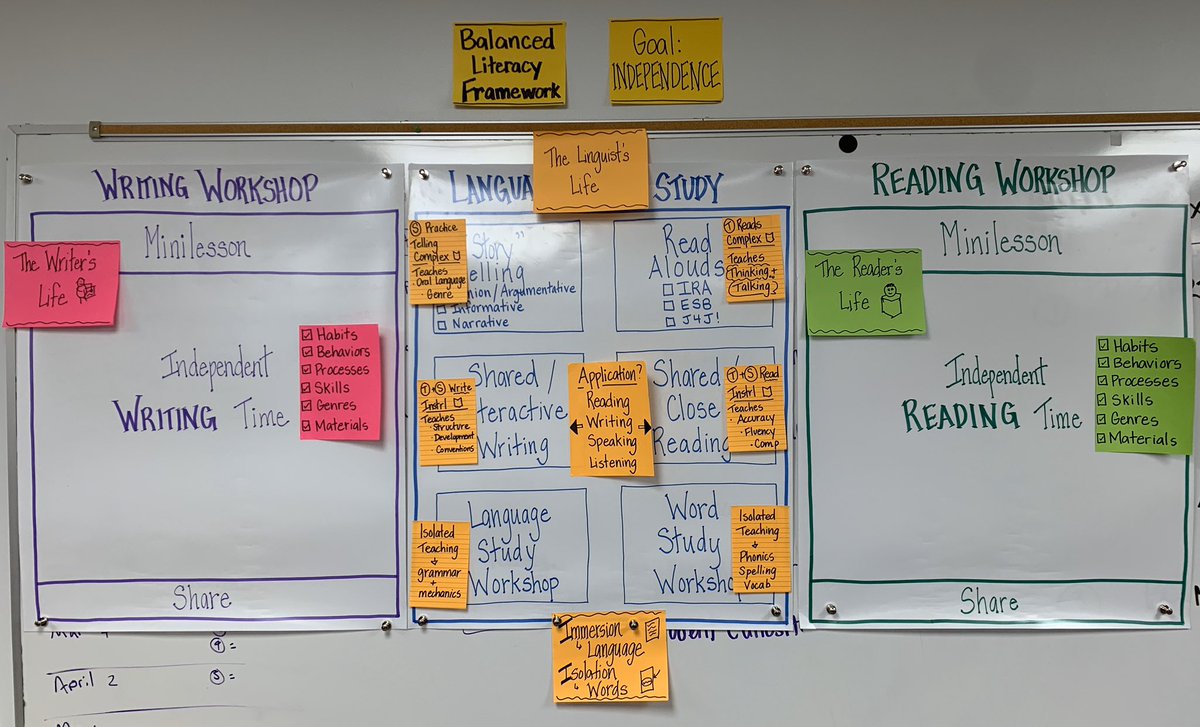 Balanced
Literacy
Framework
Goal:
INDEPENDENCE
WRITING WORKSHOP
Minilesson
The Writer's
Life
Independent
WRITING Time
☑ Habits
☑ Behaviors
☑ Processes
☑ Skills
☑ Genres
☑ Materials
Share
The Linguist's
Life
STUDY
Ⓢ Practice
Telling
Complex
Teaches
· Oral Language
· Genre
"Story"
Argumentative
☐ Informative
☐ Narrative
Read
Alouds
☐ IRA
☐ ESB
☐ J4J!
Ⓣ Reads
Complex
Teaches
Thinking +
Talking
Shared /
Writing
Ⓣ+Ⓢ Write
Instrl
Teaches
· Structure
· Development
· Conventions
Application?
Reading
Writing
Speaking
Listening
Shared /
Close
Reading
Ⓣ+Ⓢ Read
Instrl
Teaches
· Accuracy
· Fluency
· Comp
Language
Study
Workshop
Isolated
Teaching
grammar
+
mechanics
Word
Study
Isolated
Teaching
Phonics
Spelling
Vocab
Immersion
↳ Language
Isolation
↳ Words
READING WORKSHOP
Minilesson
The Reader's
Life
Independent
READING Time
☑ Habits
☑ Behaviors
☑ Processes
☑ Skills
☑ Genres
☑ Materials
Share
④ =
April 2
⑤ =